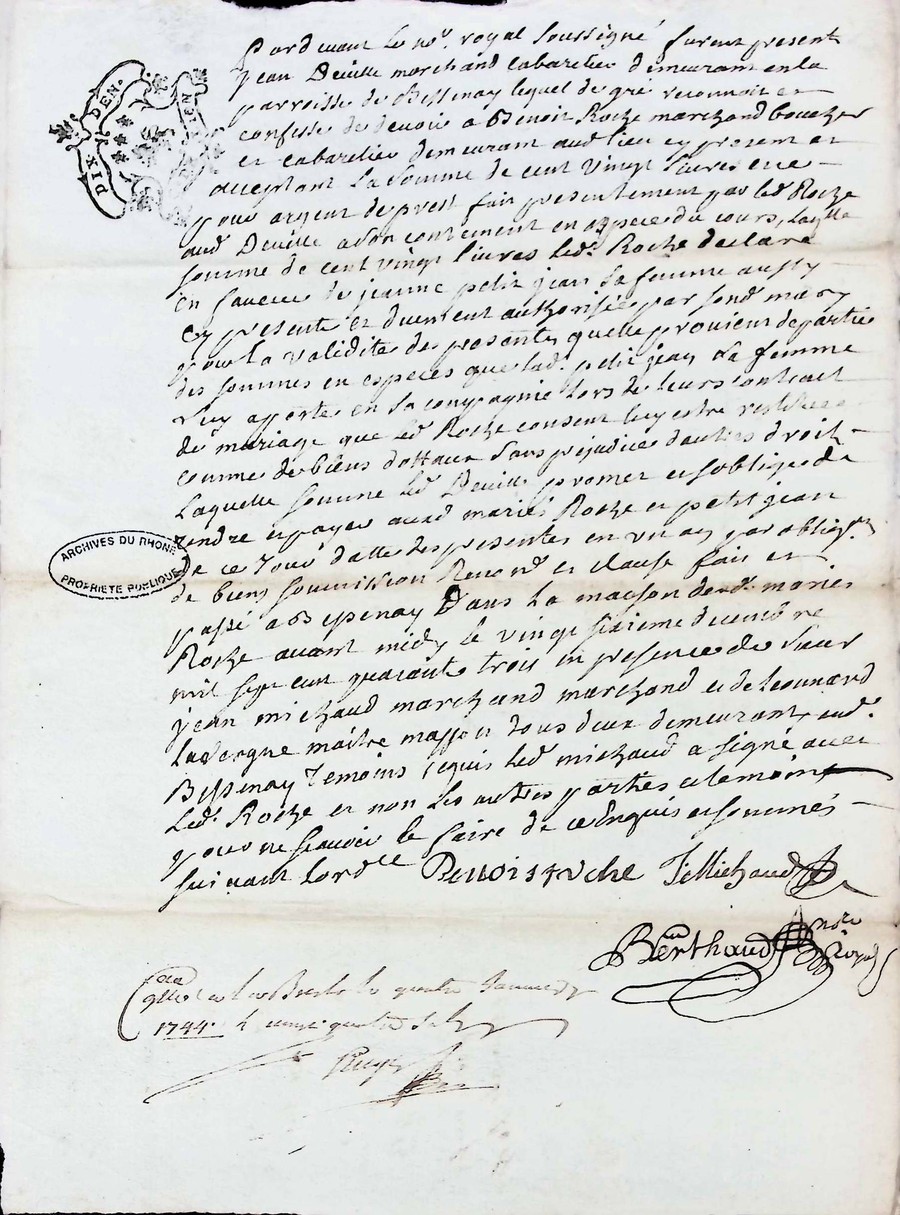 DIX DEN.
Pardevant le no.re royal soussigné furent present
jean Deville marchand cabaretier demeurant en la
parroisse de Bessenay lequel de gré reconnoit et
confesse de devoir a Benoit Roche marchand boucher
et cabaretier demeurant aud lieu cy present et
acceptant la somme de cent vingt livres et ce
pour argent de prest fait presentement par led Roche
aud Deville a son contement en espece du cours, laq.lle
somme de cent vingt livres led. Roche declare
en faveur de jeanne petit jean sa femme aussy
cy presente et duement authorisée par sond mary
pour la validite des presentes quelle provient de partie
des sommes en especes que lad. petit jean sa femme
luy aporte en sa compagnie lors de leurs contract
de mariage que led Roche consent luy estre restituee
comme de biens dottaux sans prejudice dautres droit
Laquelle somme led Deville promet et soblige de
rendre et payer ausd mariés Roche et petit jean
de ce jour datte des presentes en un an par oblig.on
de biens soumission Renon. et clause fait et
passé a Bessenay Dans la maison desd. mariés
Roche avant midy le vingt sixieme decembre
mil sept cent quarante trois en presence de sieur
jean michaud marchand marchand et de leonnard
lavergne maitre masson tous deux demeurants aud.
Bessenay Temoins requis led michaud a signé avec
led. Roche et non les autres parties et temoins
pour ne scavoir le faire de ce Enquis et sommés
suivant lord.ce Benoist roche J Michaud
Berthaud no.re Royal
ARCHIVES DU RHONE
PROPRIETE PUBLIQUE
le quatre Janvier
1744